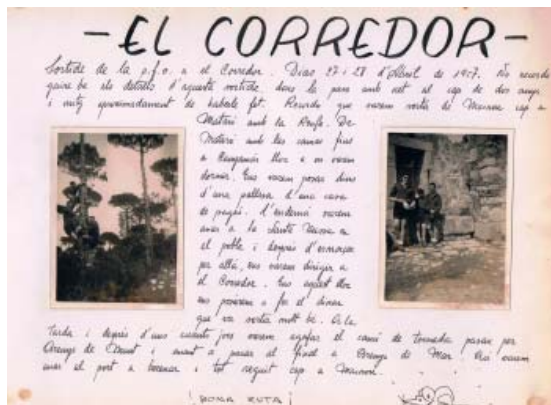 - EL CORREDOR -
Sortida de la p.f.o. a el Corredor. Dias 27 i 28 d'Abril de 1957. No recordo
gaire be els detalls d'aquesta sortida, doncs la passo amb net al cap de dos anys
i mitg aproximadament de haberla fet. Recordo que varem sortir de Masnou cap a
Mataró amb la Renfe. De
Mataró amb les cames fins
a Canyamás lloc a on varem
dormir. Ens varem posar dins
d'una pallissa d'una casa
de pagés. L'endemá varem
anar a la Santa Missa en
el poble i després d'esmorçar
per allá, ens varem dirigir a
el Corredor. En aquest lloc
ens posarem a fer el dinar
que va sortir molt be. A la
tarda i després d'uns cuants jocs varem agafar el camí de tornada pasan per
Arenys de Munt i anant a parar al final a Arenys de Mar. Alli varem
anar al port a berenar i tot seguit cap a Masnou.
¡BONA RUTA!